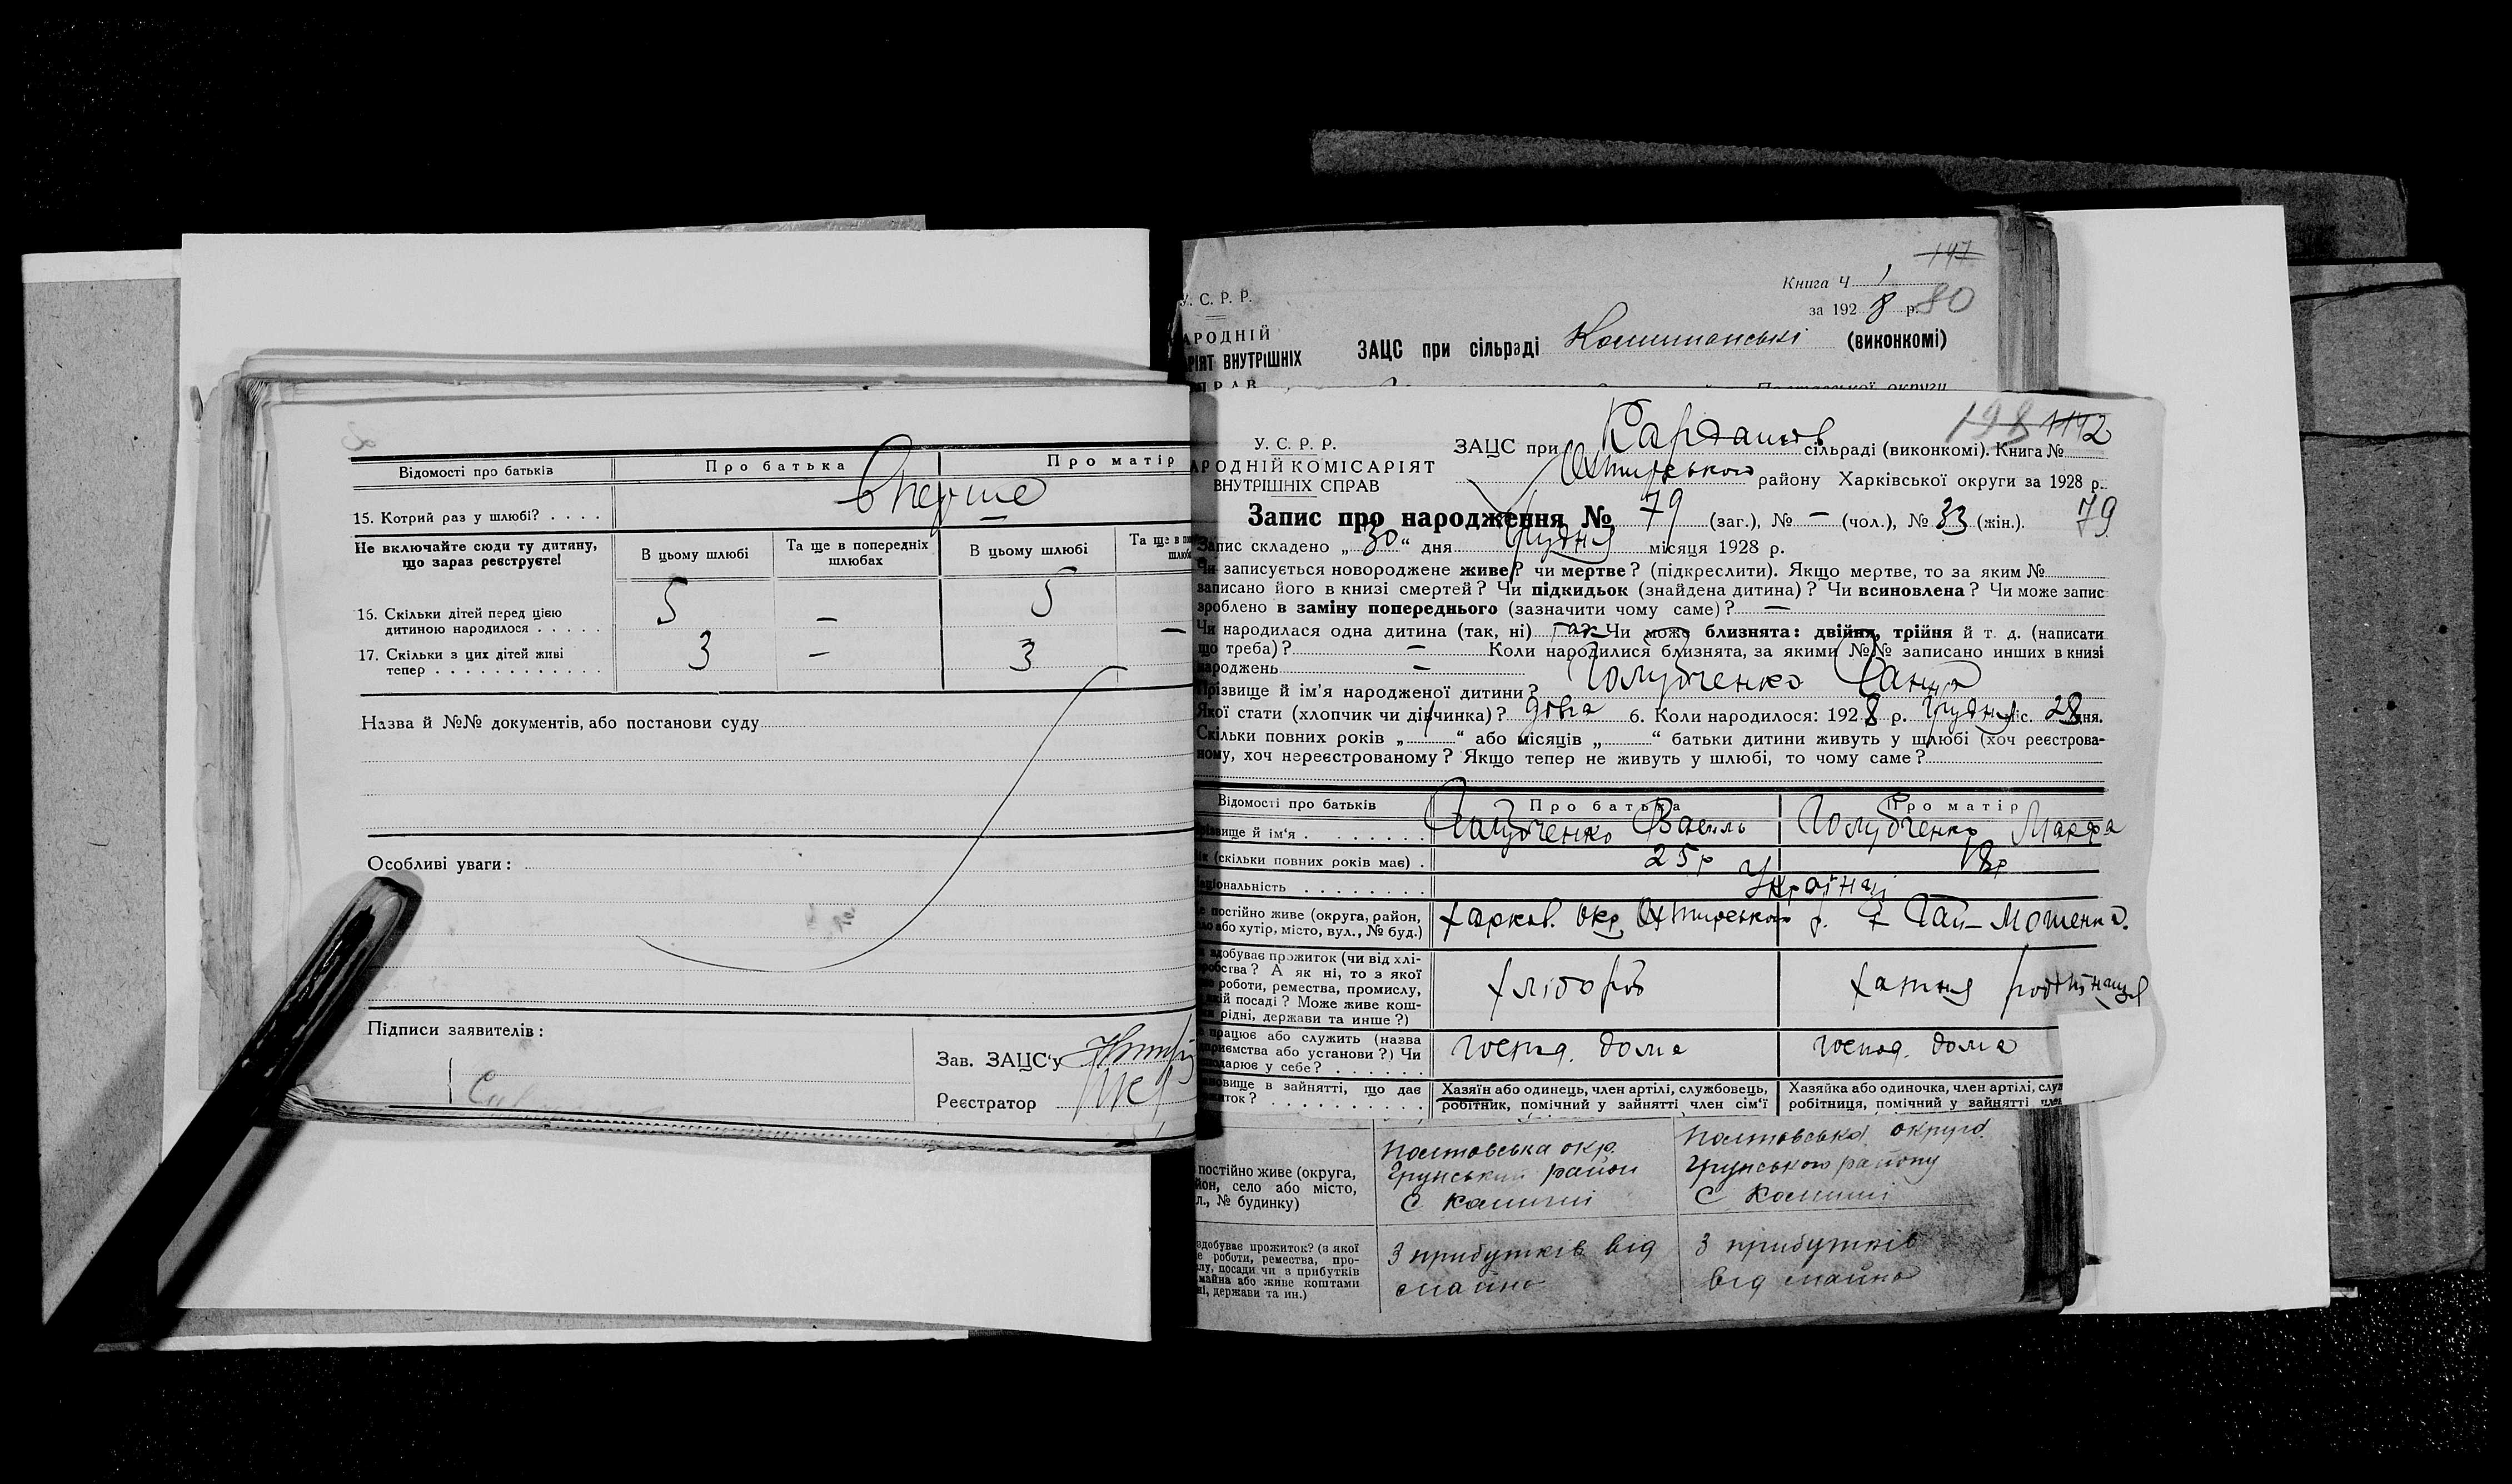 Відомості про батьків Про батька Про матір
15. Котрий раз у шлюбі? . . . . Вперше
Не включайте сюди ту дитину,
що зараз реєструєте!
В цьому шлюбі Та ще в попередніх
шлюбах В цьому шлюбі
16. Скільки дітей перед цією
дитиною народилося . . . . . 5 — 5
17. Скільки з цих дітей живі
тепер . . . . . . . . . . . . 3 — 3 —
Назва й №№ документів, або постанови суду
Особливі уваги:
Підписи заявителів:
Зав. ЗАЦС'у
Реєстратор
147
Книга Ч 1
за 1928 р. 80
У. С. Р. Р.
АРОДНІЙ
РІЯТ ВНУТРІШНІХ
ПРАВ
ЗАЦС при сільраді (виконкомі)
Полтавської округи
198 1142
У. С. Р. Р.
АРОДНІЙ КОМІСАРІЯТ
ВНУТРІШНІХ СПРАВ
ЗАЦС при Кардашів сільраді (виконкомі). Книга №
Охтирського району Харківської округи за 1928 р.
Запис про народження № 79 (заг.), № — (чол.), № 33 (жін.). 79
Запис складено „30“ дня грудня місяця 1928 р.
Чи записується новороджене живе? чи мертве? (підкреслити). Якщо мертве, то за яким №
записано його в книзі смертей? Чи підкидьок (знайдена дитина)? Чи всиновлена? Чи може запис
зроблено в заміну попереднього (зазначити чому саме)? —
Чи народилася одна дитина (так, ні) так Чи може близнята: двійня, трійня й т. д. (написати
що треба)? — Коли народилися близнята, за якими №№ записано инших в книзі
народжень —
Прізвище й ім'я народженої дитини? Голубченко Ганна
Якої стати (хлопчик чи дівчинка)? дівча 6. Коли народилося: 1928 р. грудня міс. 28 дня.
Скільки повних років „ “ або місяців „ “ батьки дитини живуть у шлюбі (хоч реєстрова-
ному, хоч нереєстрованому? Якщо тепер не живуть у шлюбі, то чому саме?
Відомості про батьків Про батька Про матір
ізвище й ім'я . . . . . . . Голубченко Василь Голубченко Марфа
ік (скільки повних років має) . 25 р 18 р
аціональність . . . . . . . . Українці
е постійно живе (округа, район,
ло або хутір, місто, вул., № буд.)
Харков. окр. Охтирського р. х Гай-Мошенка.
здобуває прожиток (чи від хлі-
робства? А як ні, то з якої
е роботи, ремества, промислу,
якій посаді? Може живе кош-
и рідні, держави та инше?)
хлібороб хатня робітниця
е працює або служить (назва
дприємства або установи?) Чи
подарює у себе? . . . . . .
господ. дома господ. дома
ановище в зайнятті, що дає
житок? . . . . . . . . . .
Хазяїн або одинець, член артілі, службовець,
робітник, помічний у зайнятті член сім'ї
Хазяйка або одиночка, член артілі, служ
робітниця, помічний у зайнятті член
постійно живе (округа,
йон, село або місто,
л., № будинку)
Полтовська окр.
Грунський район
С
Полтовська округа
Грунського району
С
здобуває прожиток? (з якої
е роботи, ремества, про-
слу, посади чи з прибутків
майна або живе коштами
ні, держави та ин.)
З прибутків від
майна
З прибутків
від майна